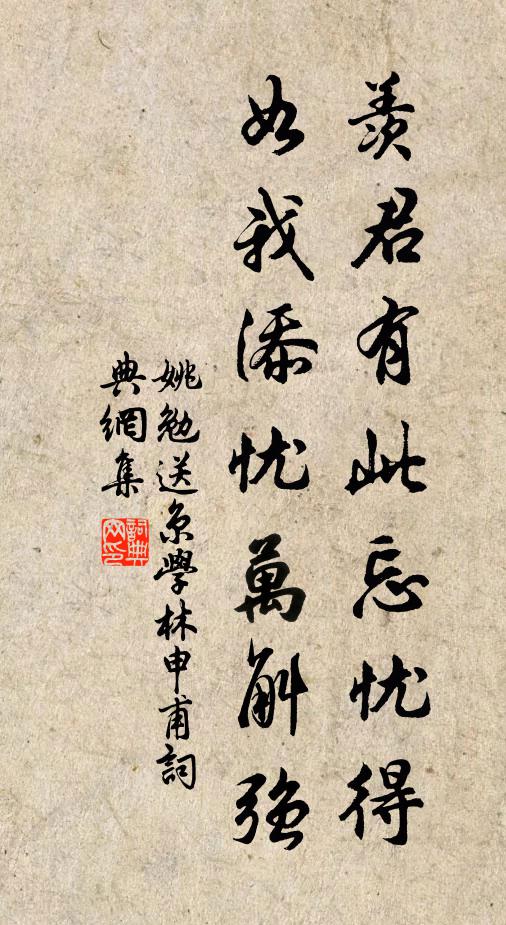 羨君有此忘忧得
如我添忧萬斛強
姚勉送京學林申甫詞
典網集
詞典
网印